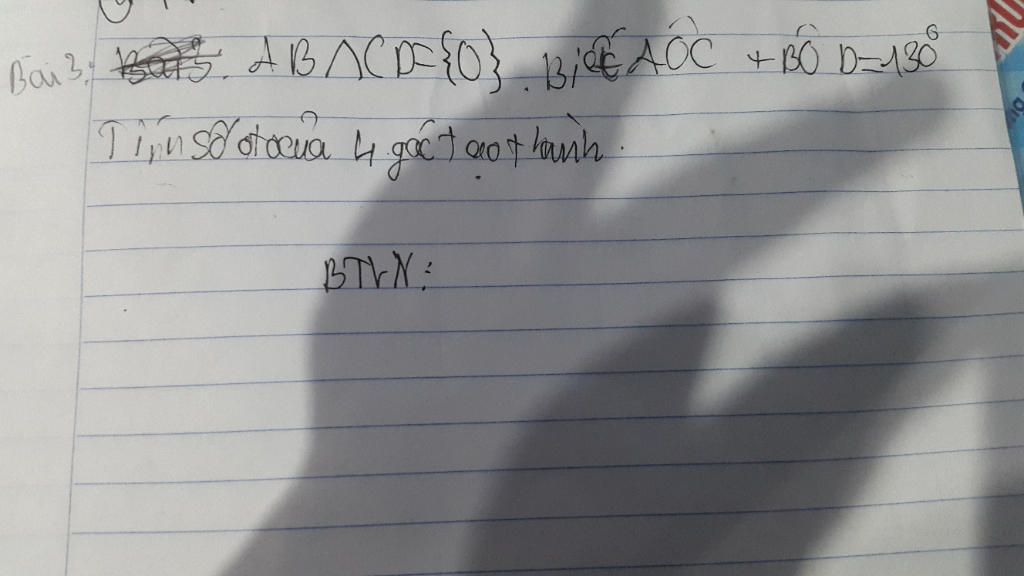 Bài 3: AB ∩ CD = {O}. Biết AÔC + BÔD = 130°
Tính số đo của 4 góc tạo thành.
BTVN: